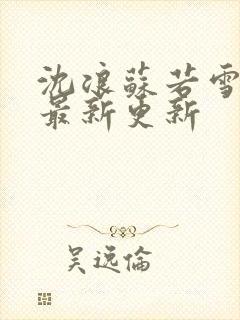 沈浪蘇若雪
最新更新
吴远倫